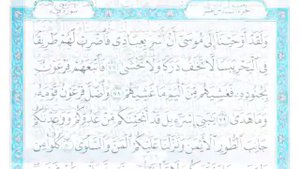 وَلَقَدْ أَوْحَيْنَآ إِلَىٰ مُوسَىٰٓ أَنْ أَسْرِ بِعِبَادِى فَٱضْرِبْ لَهُمْ طَرِيقًا
فِى ٱلْبَحْرِ يَبَسًا لَّا تَخَٰفُ دَرَكًا وَلَا تَخْشَىٰ ٧٧ فَأَتْبَعَهُمْ فِرْعَوْنُ
بِجُنُودِهِۦ فَغَشِيَهُم مِّنَ ٱلْيَمِّ مَا غَشِيَهُمْ ٧٨ وَأَضَلَّ فِرْعَوْنُ قَوْمَهُۥ
وَمَا هَدَىٰ ٧٩ يَٰبَنِىٓ إِسْرَٰٓءِيلَ قَدْ أَنجَيْنَٰكُم مِّنْ عَدُوِّكُمْ وَوَٰعَدْنَٰكُمْ
جَانِبَ ٱلطُّورِ ٱلْأَيْمَنَ وَنَزَّلْنَا عَلَيْكُمُ ٱلْمَنَّ وَٱلسَّلْوَىٰ ٨٠ كُلُوا۟ مِن